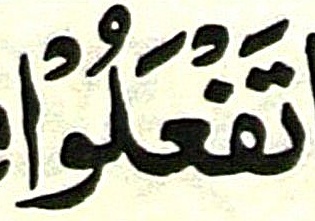 تَفْعَلُوْا